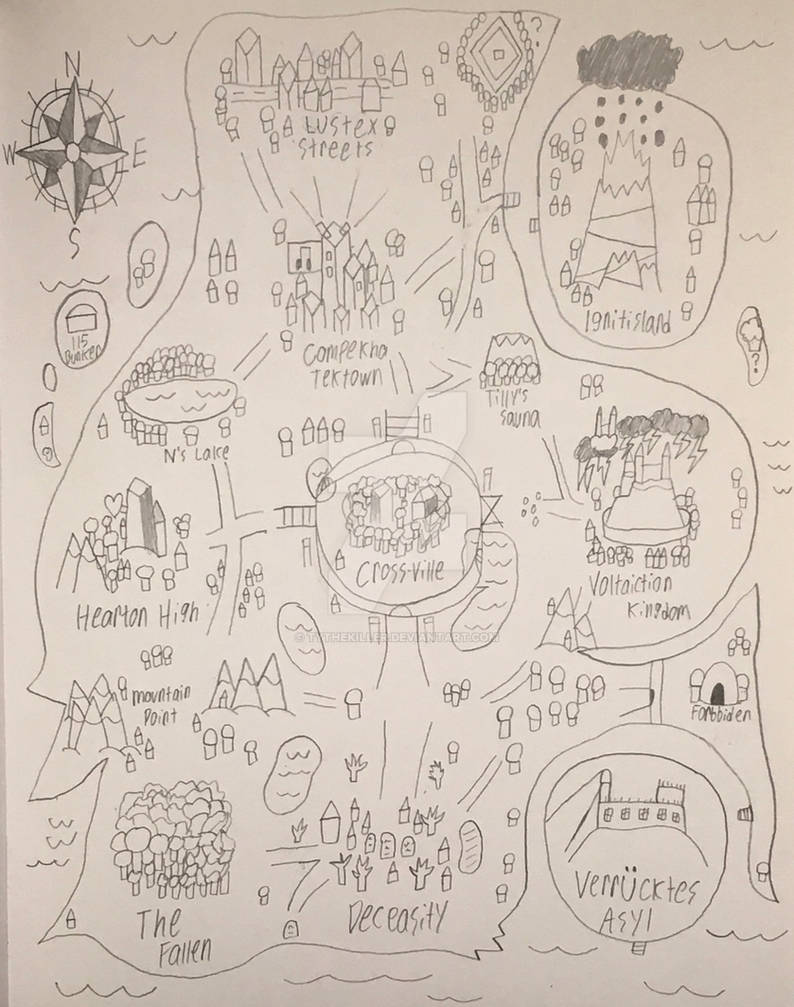 N
W
E
S
?
Lustex
Streets
Ignitisland
115
Bunker
Compekho
Tektown
?
Tilly's
Sauna
N's Lake
Cross-ville
Hearton High
Voltaiction
Kingdom
© TYTHEKILLER.DEVIANTART.COM
Mountain
Point
Forbbiden
Verrücktes
Asyl
The
Fallen
Deceasity